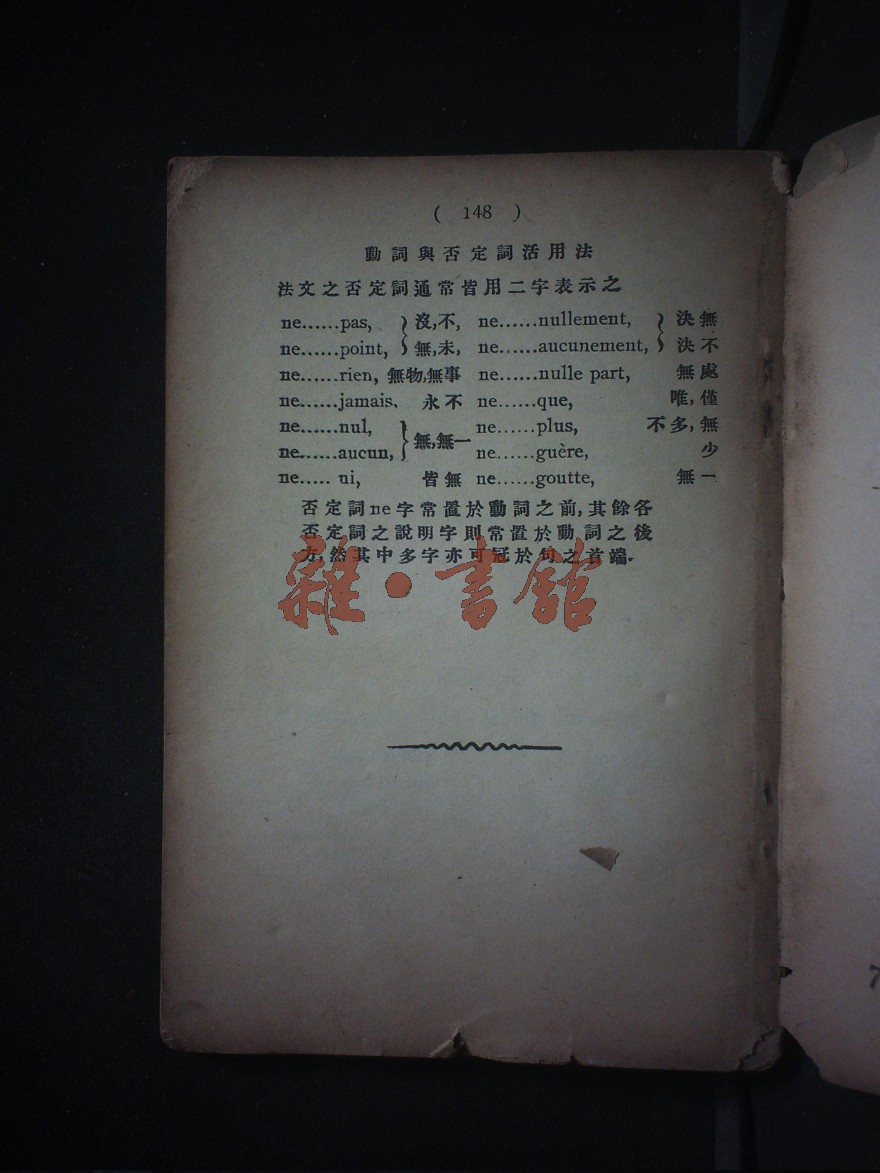 ( 148 )
動詞與否定詞活用法
法文之否定詞通常皆用二字表示之
ne......pas, 沒,不, ne......nullement, 決無
ne......point, 無,未, ne......aucunement, 決不
ne......rien, 無物,無事 ne......nulle part, 無處
ne......jamais、 永不 ne......que, 唯,僅
ne......nul, ne......plus, 不多,無
ne......aucun, 無,無一 ne......guère, 少
ne..... ni, 皆無 ne......goutte, 無一
否定詞ne字常置於動詞之前,其餘各
否定詞之說明字則常置於動詞之後
方,然其中多字亦可冠於句之首端.
雜·書館
7